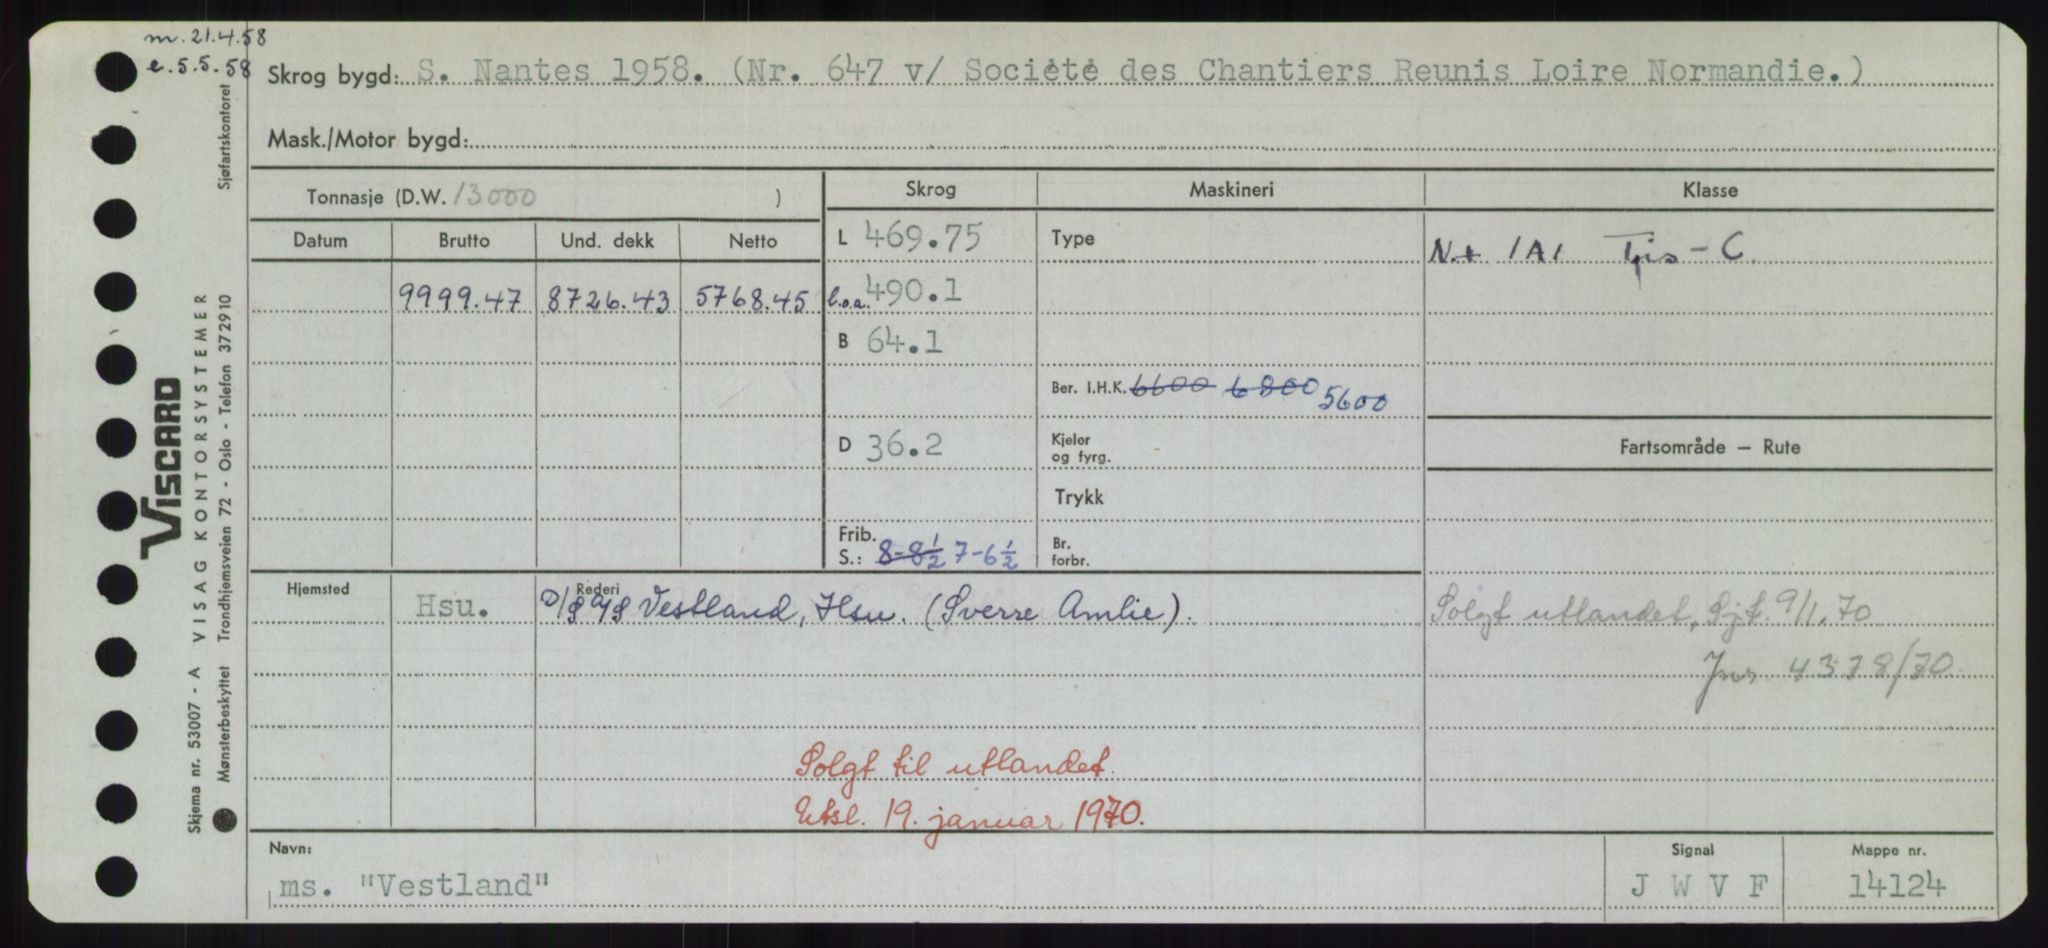 m. 21.4.58
e. 5.5.58
Skrog bygd: S. Nantes 1958. (Nr. 647 v/ Sociéte des Chantiers Reunis Loire Normandie.)
Mask./Motor bygd:
Tonnasje (D.W. 13000 ) Skrog Maskineri Klasse
Datum Brutto Und. dekk Netto L 469.75 Type N.+ 1A1 - C
9999.47 8726.43 5768.45 l.o.a. 490.1
B 64.1
Ber. I.H.K. 6600 6800 5600
D 36.2 Kjeler og fyrg. Fartsområde — Rute
Trykk
Frib. S.: 8-8½ 7-6½ Br. forbr.
Hjemsted Hsu. Rederi D/S A/S Vestland, Hsu. (Sverre Amlie). Solgt utlandet, Sjf. 9/1.70
Jnr. 4378/70
Solgt til utlandet.
Utsl. 19. januar 1970.
Navn: Signal Mappe nr.
ms. "Vestland" J W V F 14124
VISCARD
Skjema nr. 53007 - A VISAG KONTORSYSTEMER
Mønsterbeskyttet Trondhjemsveien 72 - Oslo - Telefon 372910 Sjøfartskontoret